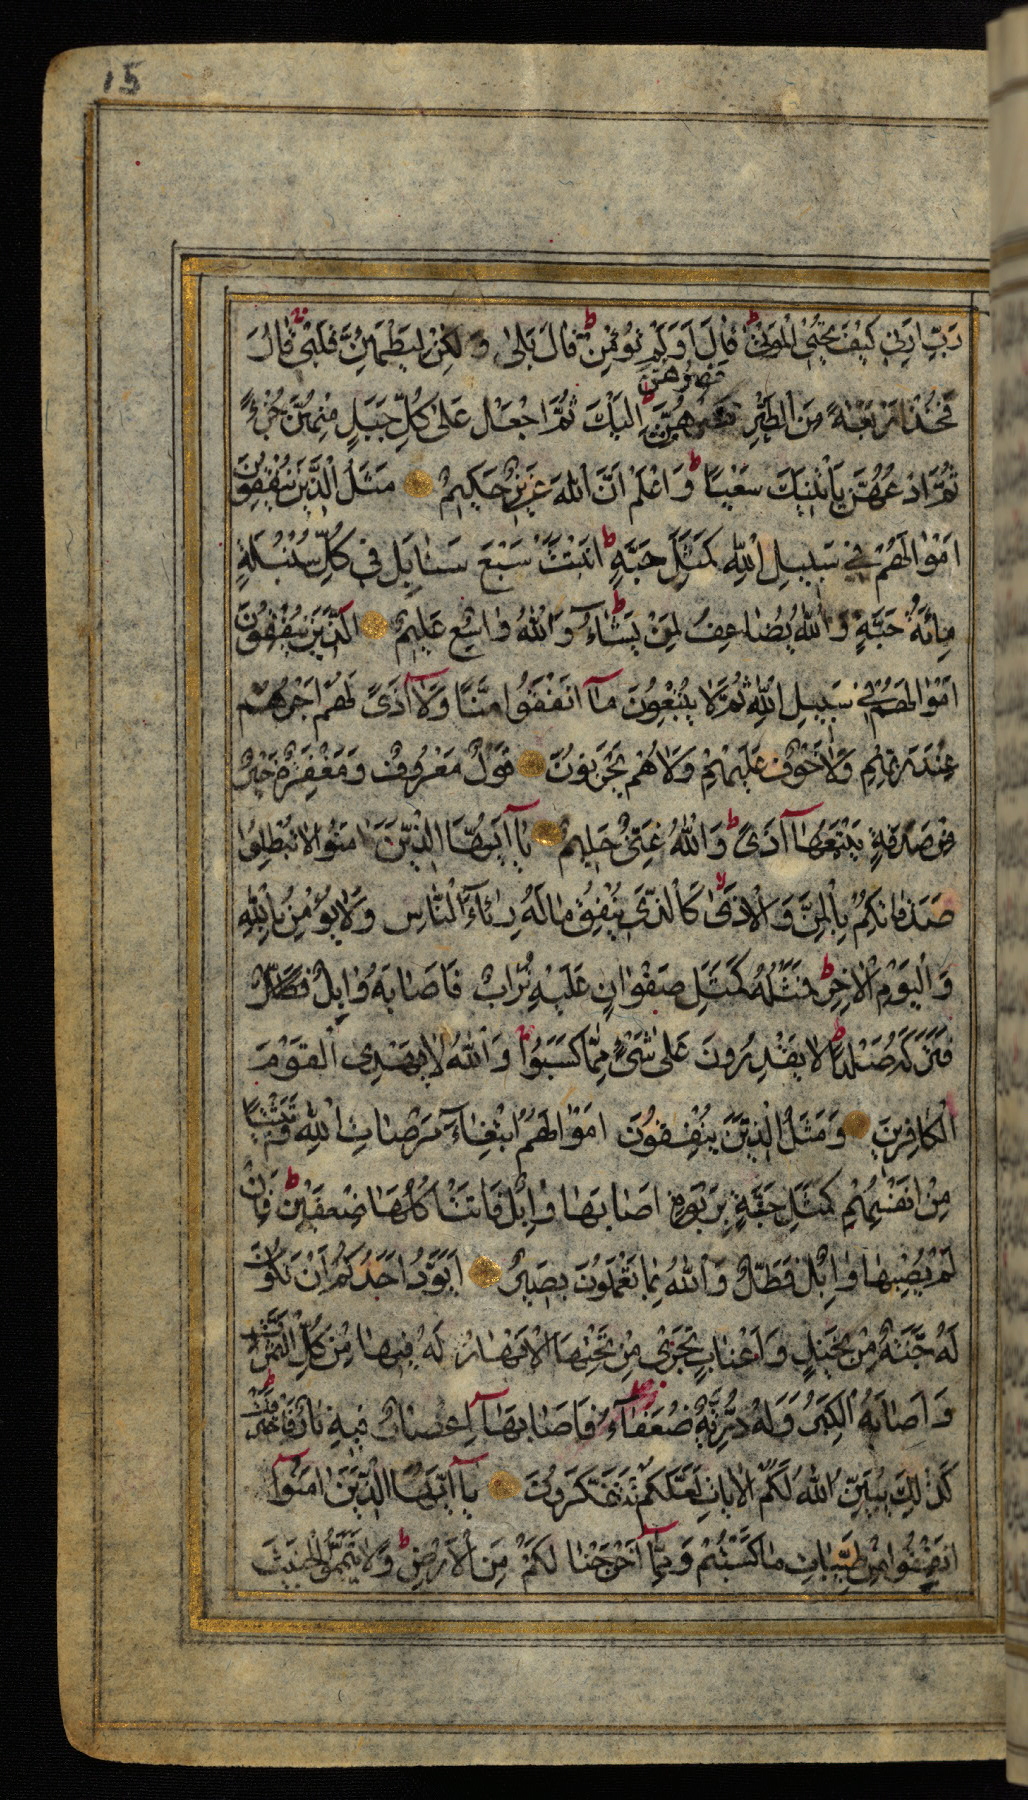 15
رَبِّ اَرِنِی كَیْفَ تُحْیِی الْمَوْتٰی ط قَالَ اَوَلَمْ تُؤْمِنْ ط قَالَ بَلٰی وَلٰكِنْ لِیَطْمَئِنَّ قَلْبِی قَالَ
فَصُرْهُنَّ
فَخُذْ اَرْبَعَةً مِنَ الطَّیْرِ فَصُرْهُنَّ اِلَیْكَ ثُمَّ اجْعَلْ عَلٰی كُلِّ جَبَلٍ مِنْهُنَّ جُزْءً
ثُمَّ ادْعُهُنَّ یَأْتِینَكَ سَعْیًا ط وَاعْلَمْ اَنَّ اللّٰهَ عَزِیزٌ حَكِیمٌ مَثَلُ الَّذِینَ یُنْفِقُونَ
اَمْوٰالَهُمْ فِی سَبِیلِ اللّٰهِ كَمَثَلِ حَبَّةٍ ط اَنْبَتَتْ سَبْعَ سَنَابِلَ فِی كُلِّ سُنْبُلَةٍ
مِائَةُ حَبَّةٍ وَاللّٰهُ یُضَاعِفُ لِمَنْ یَشَاءُ ط وَاللّٰهُ وَاسِعٌ عَلِیمٌ الَّذِینَ یُنْفِقُونَ
اَمْوَالَهُمْ فِی سَبِیلِ اللّٰهِ ثُمَّ لَا یُتْبِعُونَ مَآ اَنْفَقُوا مَنًّا وَلَآ اَذًی لَهُمْ اَجْرُهُمْ
عِنْدَ رَبِّهِمْ وَلَا خَوْفٌ عَلَیْهِمْ وَلَا هُمْ یَحْزَنُونَ قَوْلٌ مَعْرُوفٌ وَمَغْفِرَةٌ خَیْرٌ
مِنْ صَدَقَةٍ یَتْبَعُهَآ اَذًی ط وَاللّٰهُ غَنِیٌّ حَلِیمٌ یَآ اَیُّهَا الَّذِینَ اٰمَنُوا لَا تُبْطِلُوا
صَدَقَاتِكُمْ بِالْمَنِّ وَالْاَذٰی لا كَالَّذِی یُنْفِقُ مَالَهُ رِئَآءَ النَّاسِ وَلَا یُؤْمِنُ بِاللّٰهِ
وَالْیَوْمِ الْاٰخِرِ ط فَمَثَلُهُ كَمَثَلِ صَفْوَانٍ عَلَیْهِ تُرَابٌ فَاَصَابَهُ وَابِلٌ
فَتَرَكَهُ صَلْدًا ط لَا یَقْدِرُونَ عَلٰی شَیْءٍ مِمَّا كَسَبُوا وَاللّٰهُ لَا یَهْدِی الْقَوْمَ
الْكَافِرِینَ وَمَثَلُ الَّذِینَ یُنْفِقُونَ اَمْوَالَهُمُ ابْتِغَآءَ مَرْضَاتِ اللّٰهِ وَتَثْبِیتًا
مِنْ اَنْفُسِهِمْ كَمَثَلِ جَنَّةٍ بِرَبْوَةٍ اَصَابَهَا وَابِلٌ فَاٰتَتْ اُكُلَهَا ضِعْفَیْنِ ط فَاِنْ
لَمْ یُصِبْهَا وَابِلٌ فَطَلٌّ وَاللّٰهُ بِمَا تَعْمَلُونَ بَصِیرٌ اَیَوَدُّ اَحَدُكُمْ اَنْ تَكُونَ
لَهُ جَنَّةٌ مِنْ نَخِیلٍ وَاَعْنَابٍ تَجْرِی مِنْ تَحْتِهَا الْاَنْهَارُ لَهُ فِیهَا مِنْ كُلِّ الثَّمَرَاتِ
وَاَصَابَهُ الْكِبَرُ وَلَهُ ذُرِّیَّةٌ ضُعَفَآءُ فَاَصَابَهَآ اِعْصَارٌ فِیهِ نَارٌ فَاحْتَرَقَتْ ط
كَذٰلِكَ یُبَیِّنُ اللّٰهُ لَكُمُ الْاٰیَاتِ لَعَلَّكُمْ تَتَفَكَّرُونَ یَآ اَیُّهَا الَّذِینَ اٰمَنُوآ
اَنْفِقُوا مِنْ طَیِّبَاتِ مَا كَسَبْتُمْ وَمِمَّآ اَخْرَجْنَا لَكُمْ مِنَ الْاَرْضِ ط وَلَا تَیَمَّمُوا الْخَبِیثَ